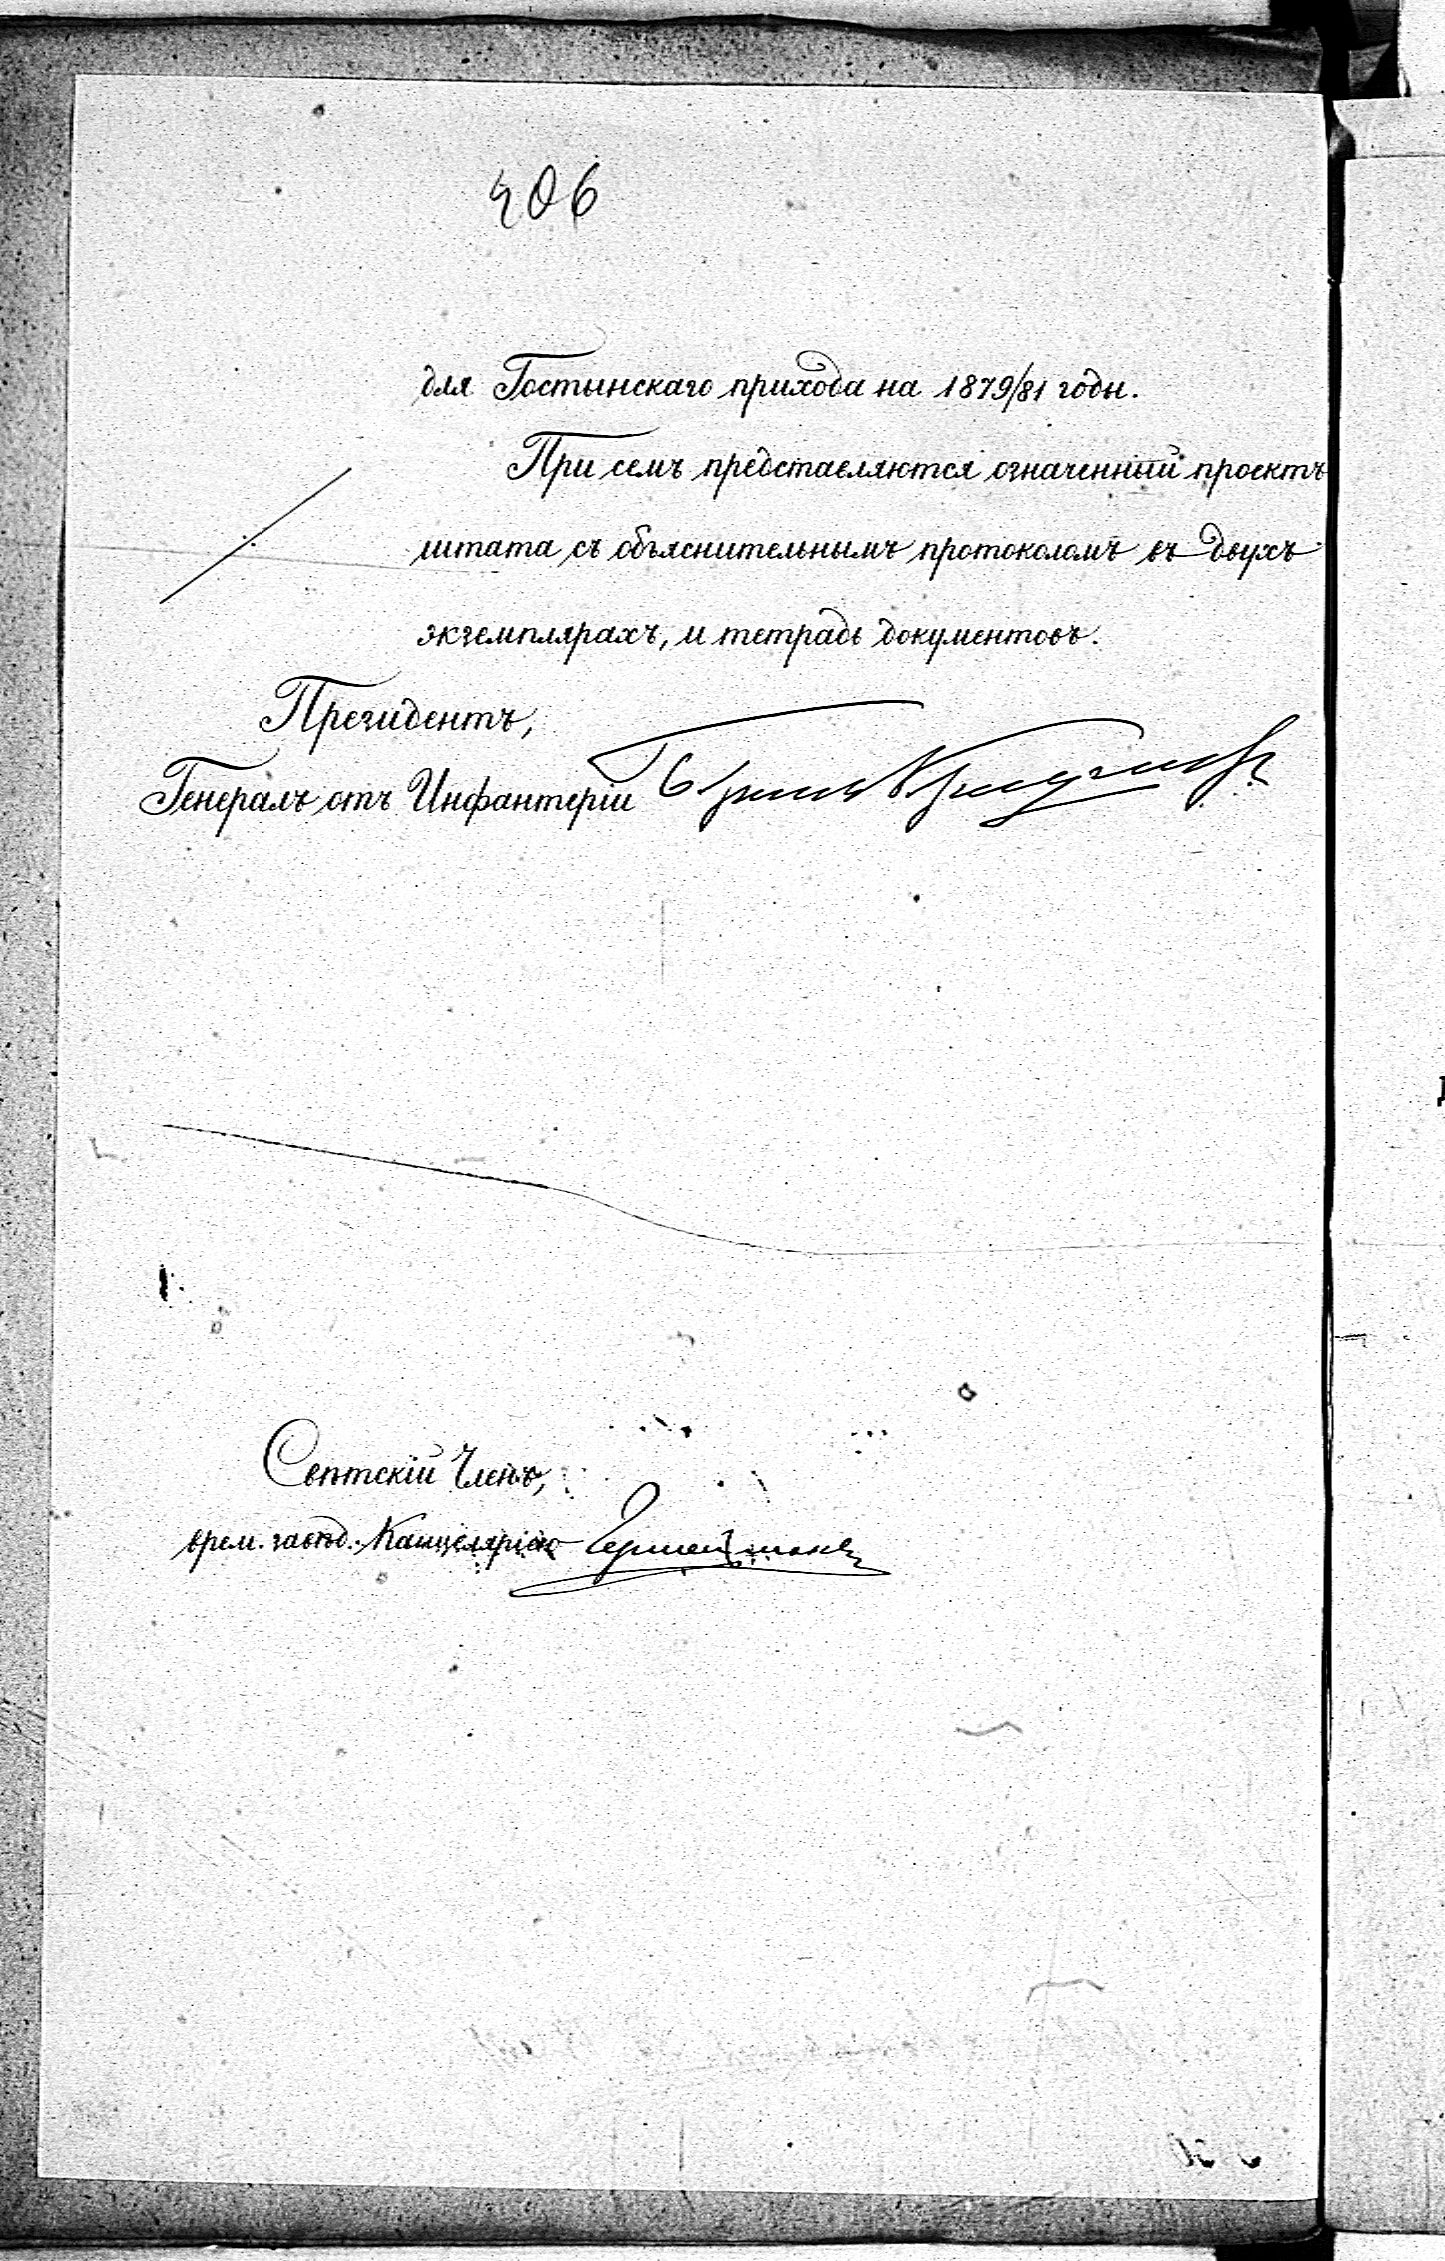 406
для Гостынскаго прихода на 1879/81 годы.
При семъ представляются означенный проектъ
штата съ объяснительнымъ протоколомъ въ двухъ
экземплярахъ, и тетрадь документовъ.
Президентъ,
Генералъ отъ Инфантеріи
Свѣтскій Членъ,
врем. завѣд. Канцеляріею